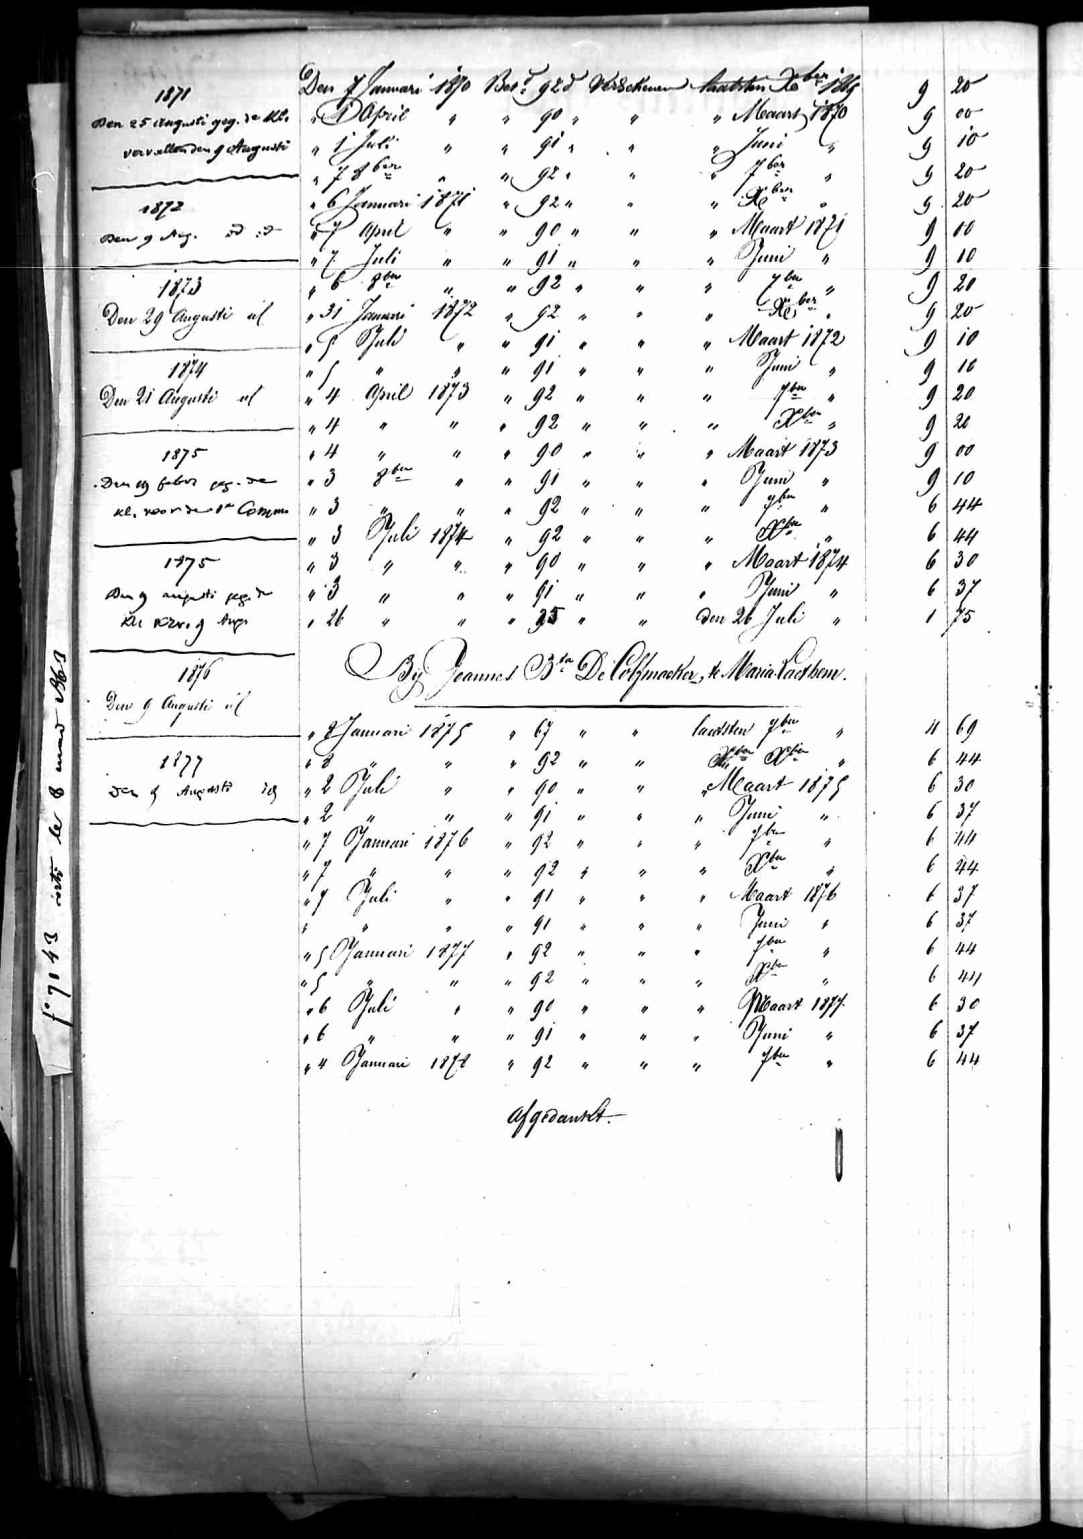 1871
Den 25 Augusti geg. de Kl.
vervallen den 9 Augusti
1872
Den 9 Aug. id id
1873
Den 29 Augusti id
1874
Den 21 Augusti id
1875
Den 19 febr geg. de
Kl. voor de 1e Commu
1875
Den 9 augusti geg. de
Kl verv. 9 Aug.
1876
Den 9 Augusti id
1877
Den 9 Augusti id
Den 7 Januari 1870 Bet. 92 d Verschenen laatsten Xber 1869 9 20
" 1 April " " 90 " " " Maart 1870 9 00
" 1 Juli " " 91 " " " Juni " 9 10
" 7 8ber " " 92 " " " 7ber " 9 20
" 6 Januari 1871 " 92 " " " Xber " 9 20
" 7 April " " 90 " " " Maart 1871 9 10
" 7 Juli " " 91 " " " Juni " 9 10
" 6 8ber " " 92 " " " 7ber " 9 20
" 31 Januari 1872 " 92 " " " Xber " 9 20
" 5 Juli " " 91 " " " Maart 1872 9 10
" 5 " " " 91 " " " Juni " 9 10
" 4 April 1873 " 92 " " " 7ber " 9 20
" 4 " " " 92 " " " Xber " 9 20
" 4 " " " 90 " " " Maart 1873 9 00
" 3 8ber " " 91 " " " Juni " 9 10
" 3 " " " 92 " " " 7ber " 6 44
" 3 Juli 1874 " 92 " " " Xber " 6 44
" 3 " " " 90 " " " Maart 1874 6 30
" 3 " " " 91 " " " Juni " 6 37
" 26 " " " 25 " " den 26 Juli " 1 75
By Joannes Bta De Colfmacker, te Maria Laethem.
" 8 Januari 1875 " 67 " " laatsten 7ber " 4 69
" 8 " " " 92 " " Xber " 6 44
" 2 Juli " " 90 " " " Maart 1875 6 30
" 2 " " " 91 " " " Juni " 6 37
" 7 Januari 1876 " 92 " " " 7ber " 6 44
" 7 " " " 92 " " " Xber " 6 44
" 7 Juli " " 91 " " " Maart 1876 6 37
" " " " 91 " " " Juni " 6 37
" 5 Januari 1877 " 92 " " " 7ber " 6 44
" 5 " " " 92 " " " Xber " 6 44
" 6 Juli " " 90 " " " Maart 1877 6 30
" 6 " " " 91 " " " Juni " 6 37
" 4 Januari 1878 " 92 " " " 7ber " 6 44
Afgedankt.